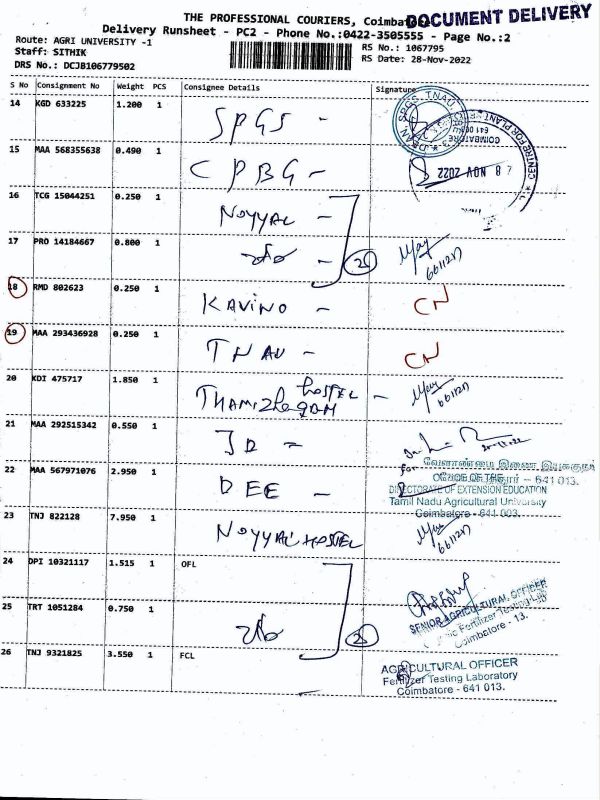 THE PROFESSIONAL COURIERS, Coimbatore
DOCUMENT DELIVERY
Delivery Runsheet - PC2 - Phone No.:0422-3505555 - Page No.:2
Route: AGRI UNIVERSITY -1
RS No.: 1067795
Staff: SITHIK
RS Date: 28-Nov-2022
DRS No.: DCJB106779502
S No Consignment No Weight PCS Consignee Details Signature
14 KGD 633225 1.200 1 SPGS -
DEAN SPGS, TNAU
COIMBATORE
641 003
15 MAA 568355638 0.490 1 CPBG -
CENTRE FOR PLANT
8 NOV 2022
16 TCG 15044251 0.250 1 NOYYAL -
17 PRO 14184667 0.800 1
18 RMD 802623 0.250 1 KAVINO - CN
19 MAA 293436928 0.250 1 TNAU - CN
20 KDI 475717 1.850 1 THAMIZHAGAM HOSTEL -
21 MAA 292515342 0.550 1 JD -
for
22 MAA 567971076 2.950 1 DEE -
OFFICE OF THE
- 641 013.
DIRECTORATE OF EXTENSION EDUCATION
Tamil Nadu Agricultural University
Coimbatore - 641 003.
23 TNJ 822128 7.950 1 NOYYAL HOSTEL
24 DPI 10321117 1.515 1 OFL
SENIOR AGRICULTURAL OFFICER
Fertilizer Testing Lab
Coimbatore - 13.
25 TRT 1051284 0.750 1
26 TNJ 9321825 3.550 1 FCL
AGRICULTURAL OFFICER
Fertilizer Testing Laboratory
Coimbatore - 641 013.